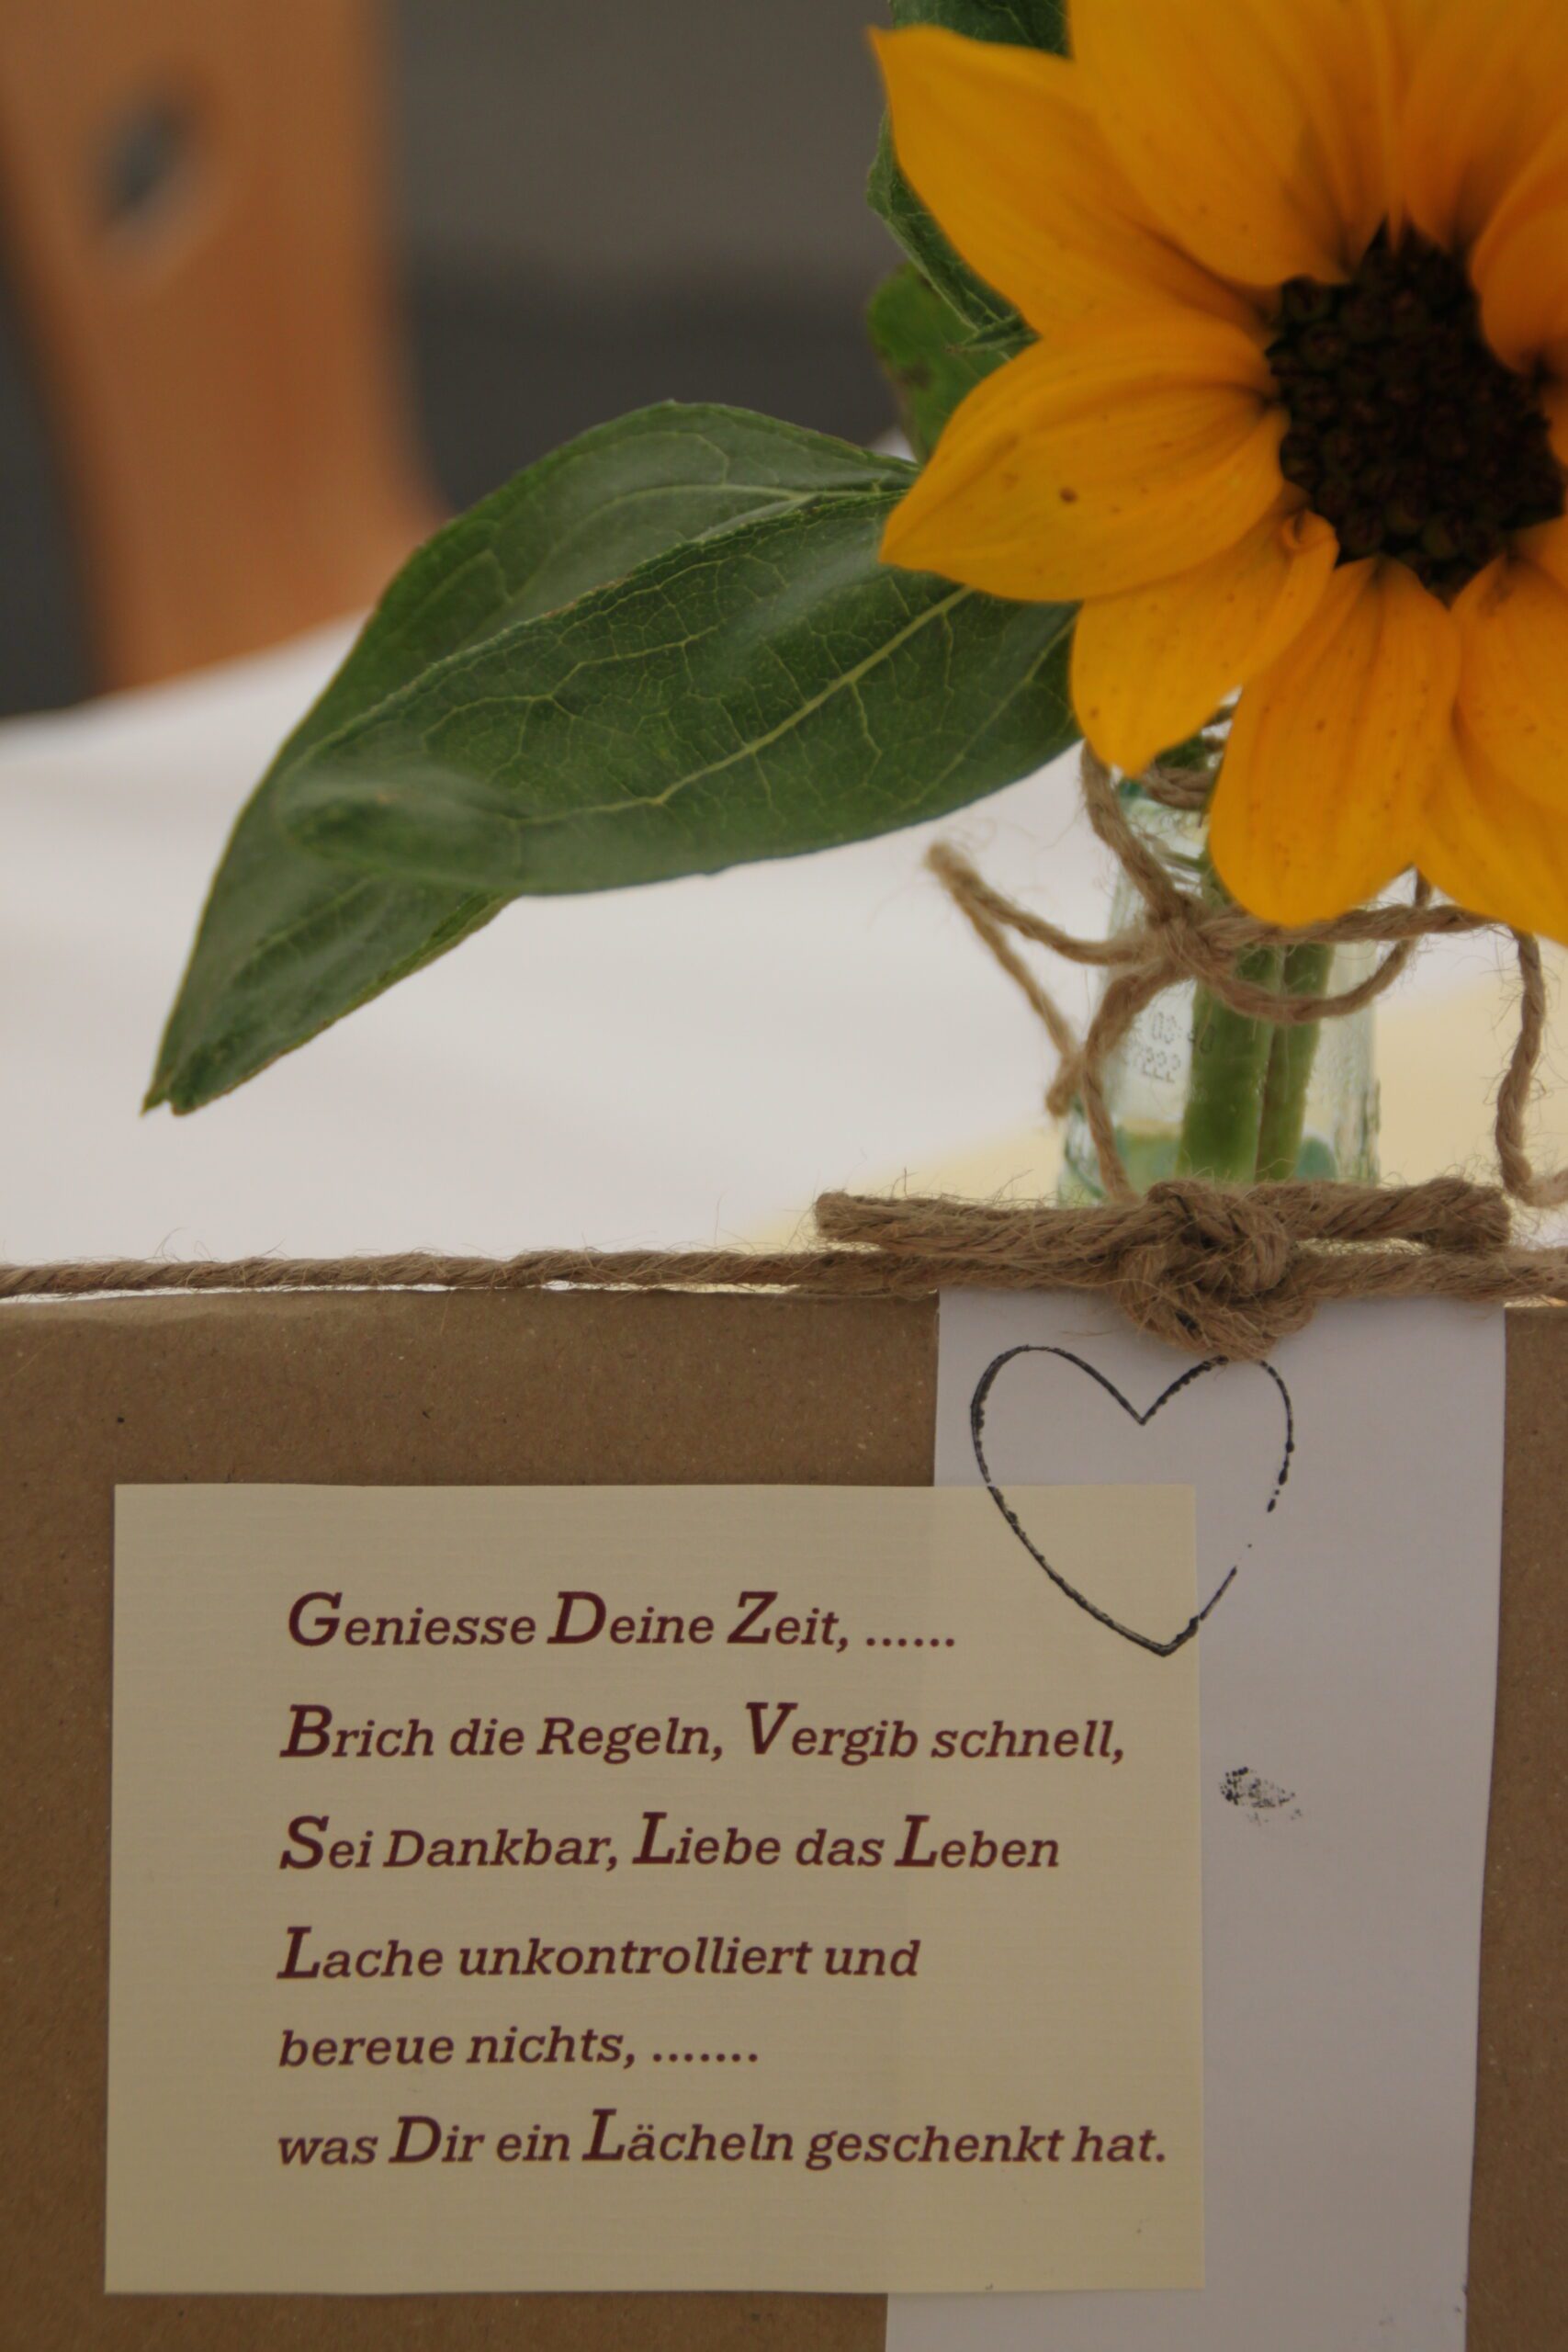 Geniesse Deine Zeit, ......
Brich die Regeln, Vergib schnell,
Sei Dankbar, Liebe das Leben
Lache unkontrolliert und
bereue nichts, .......
was Dir ein Lächeln geschenkt hat.